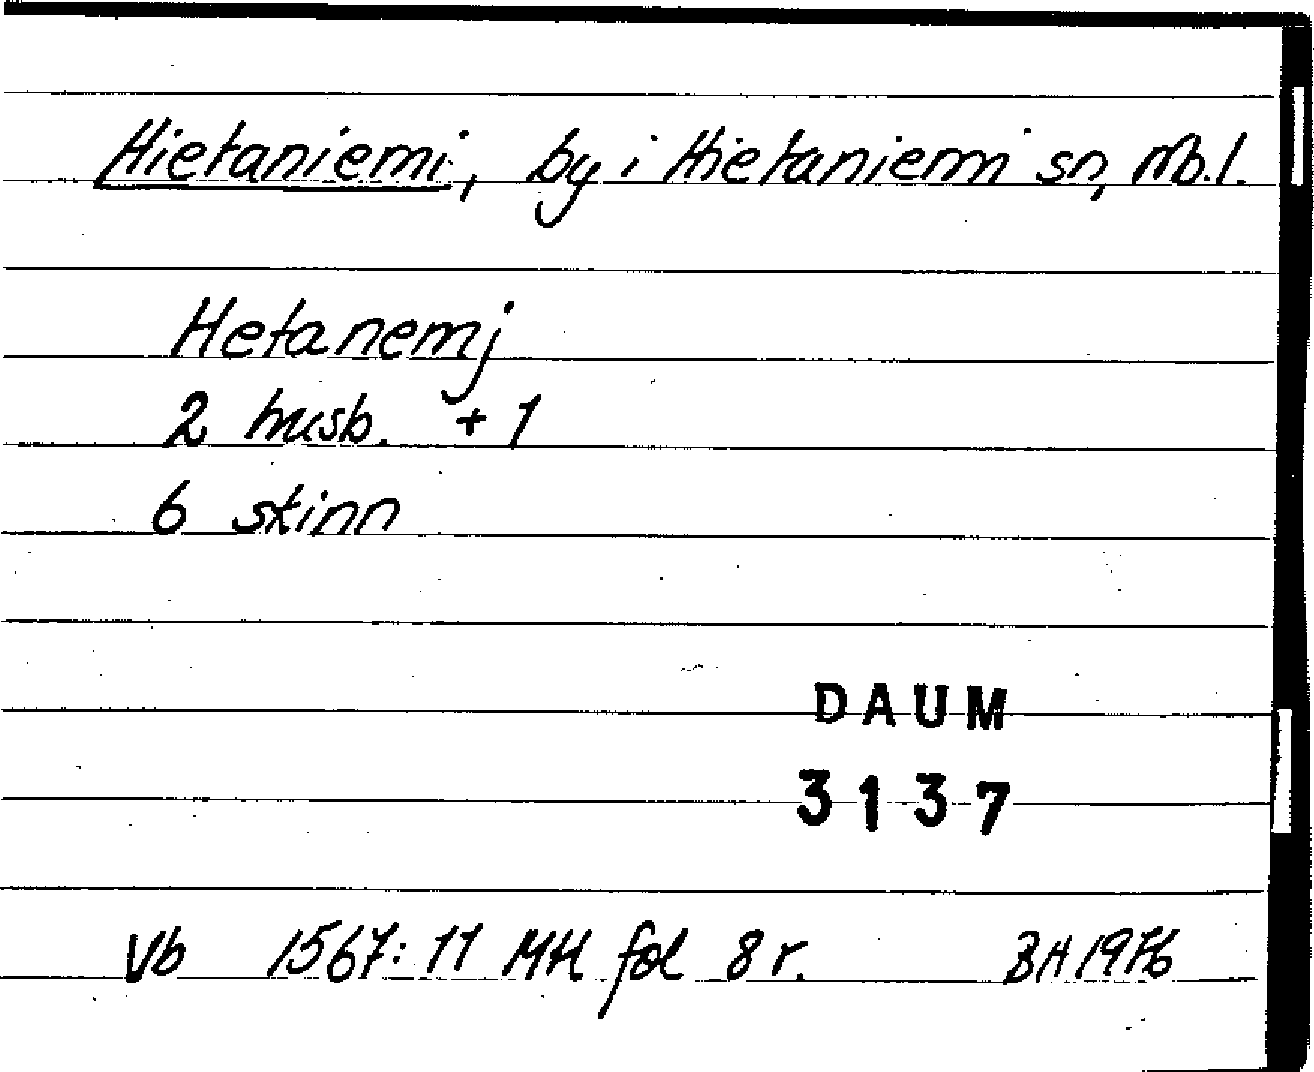 Hietaniemi, by i Hietaniemi sn, Nb.l.
Hetanemj
2 husb. + 1
6 skinn
DAUM
3137
Vb 1567:11 MH fol 8 r. BH 1976